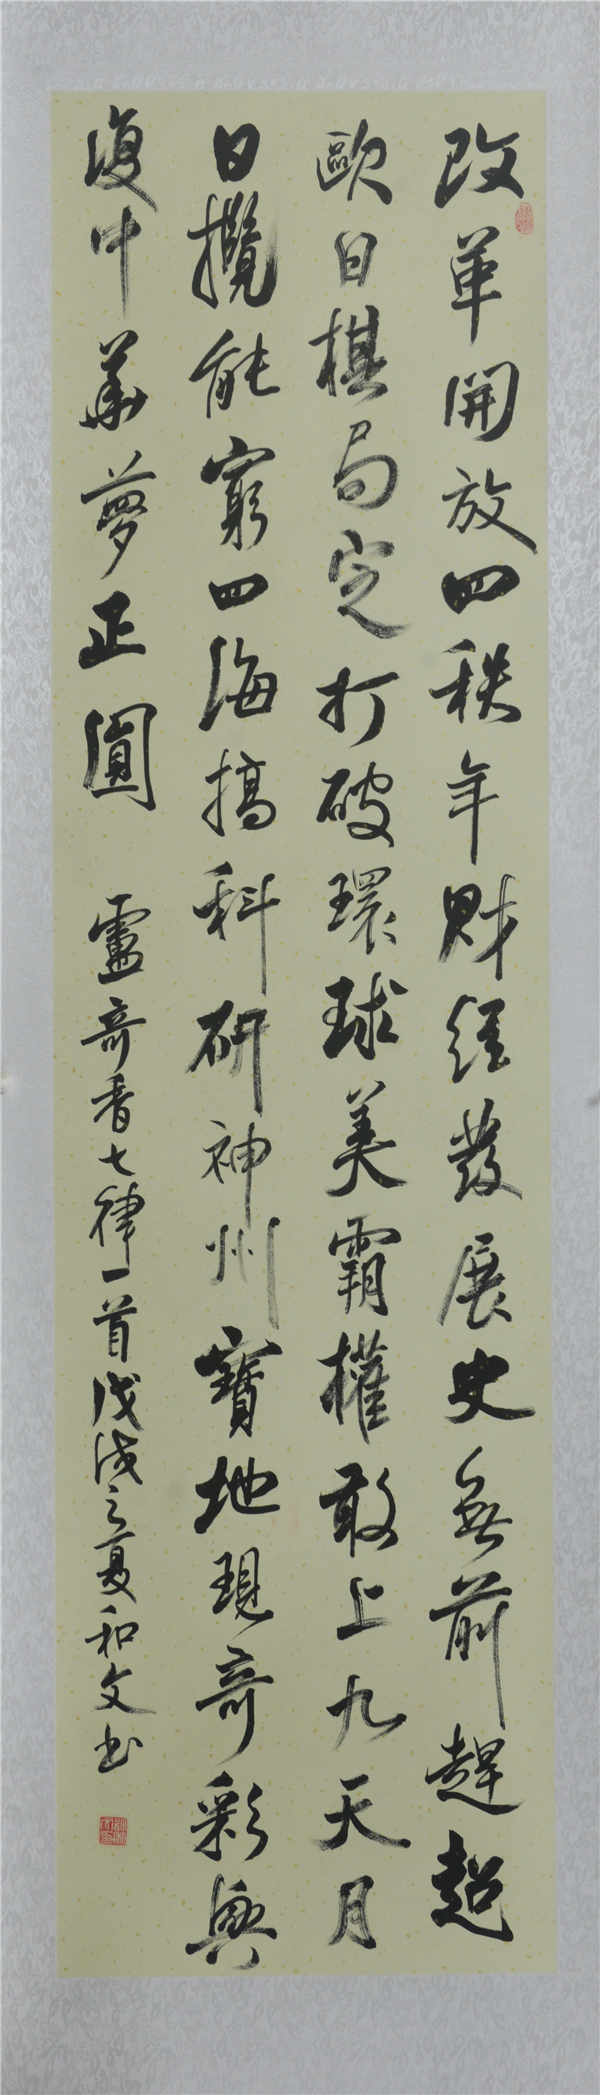 改革開放四秩年財經發展史無前趕超
歐日棋局定打破環球美霸權敢上九天月
日攬能窮四海搞科研神州寶地現奇彩興
復中華夢正圓 盧奇香七律一首戊戌之夏和文书